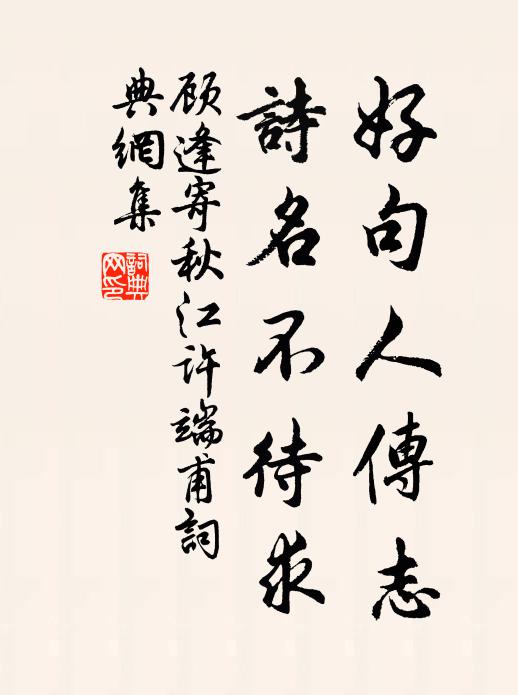 好句人傳志
詩名不待求
顾逢寄秋江许端甫詞
典網集
詞典
网印